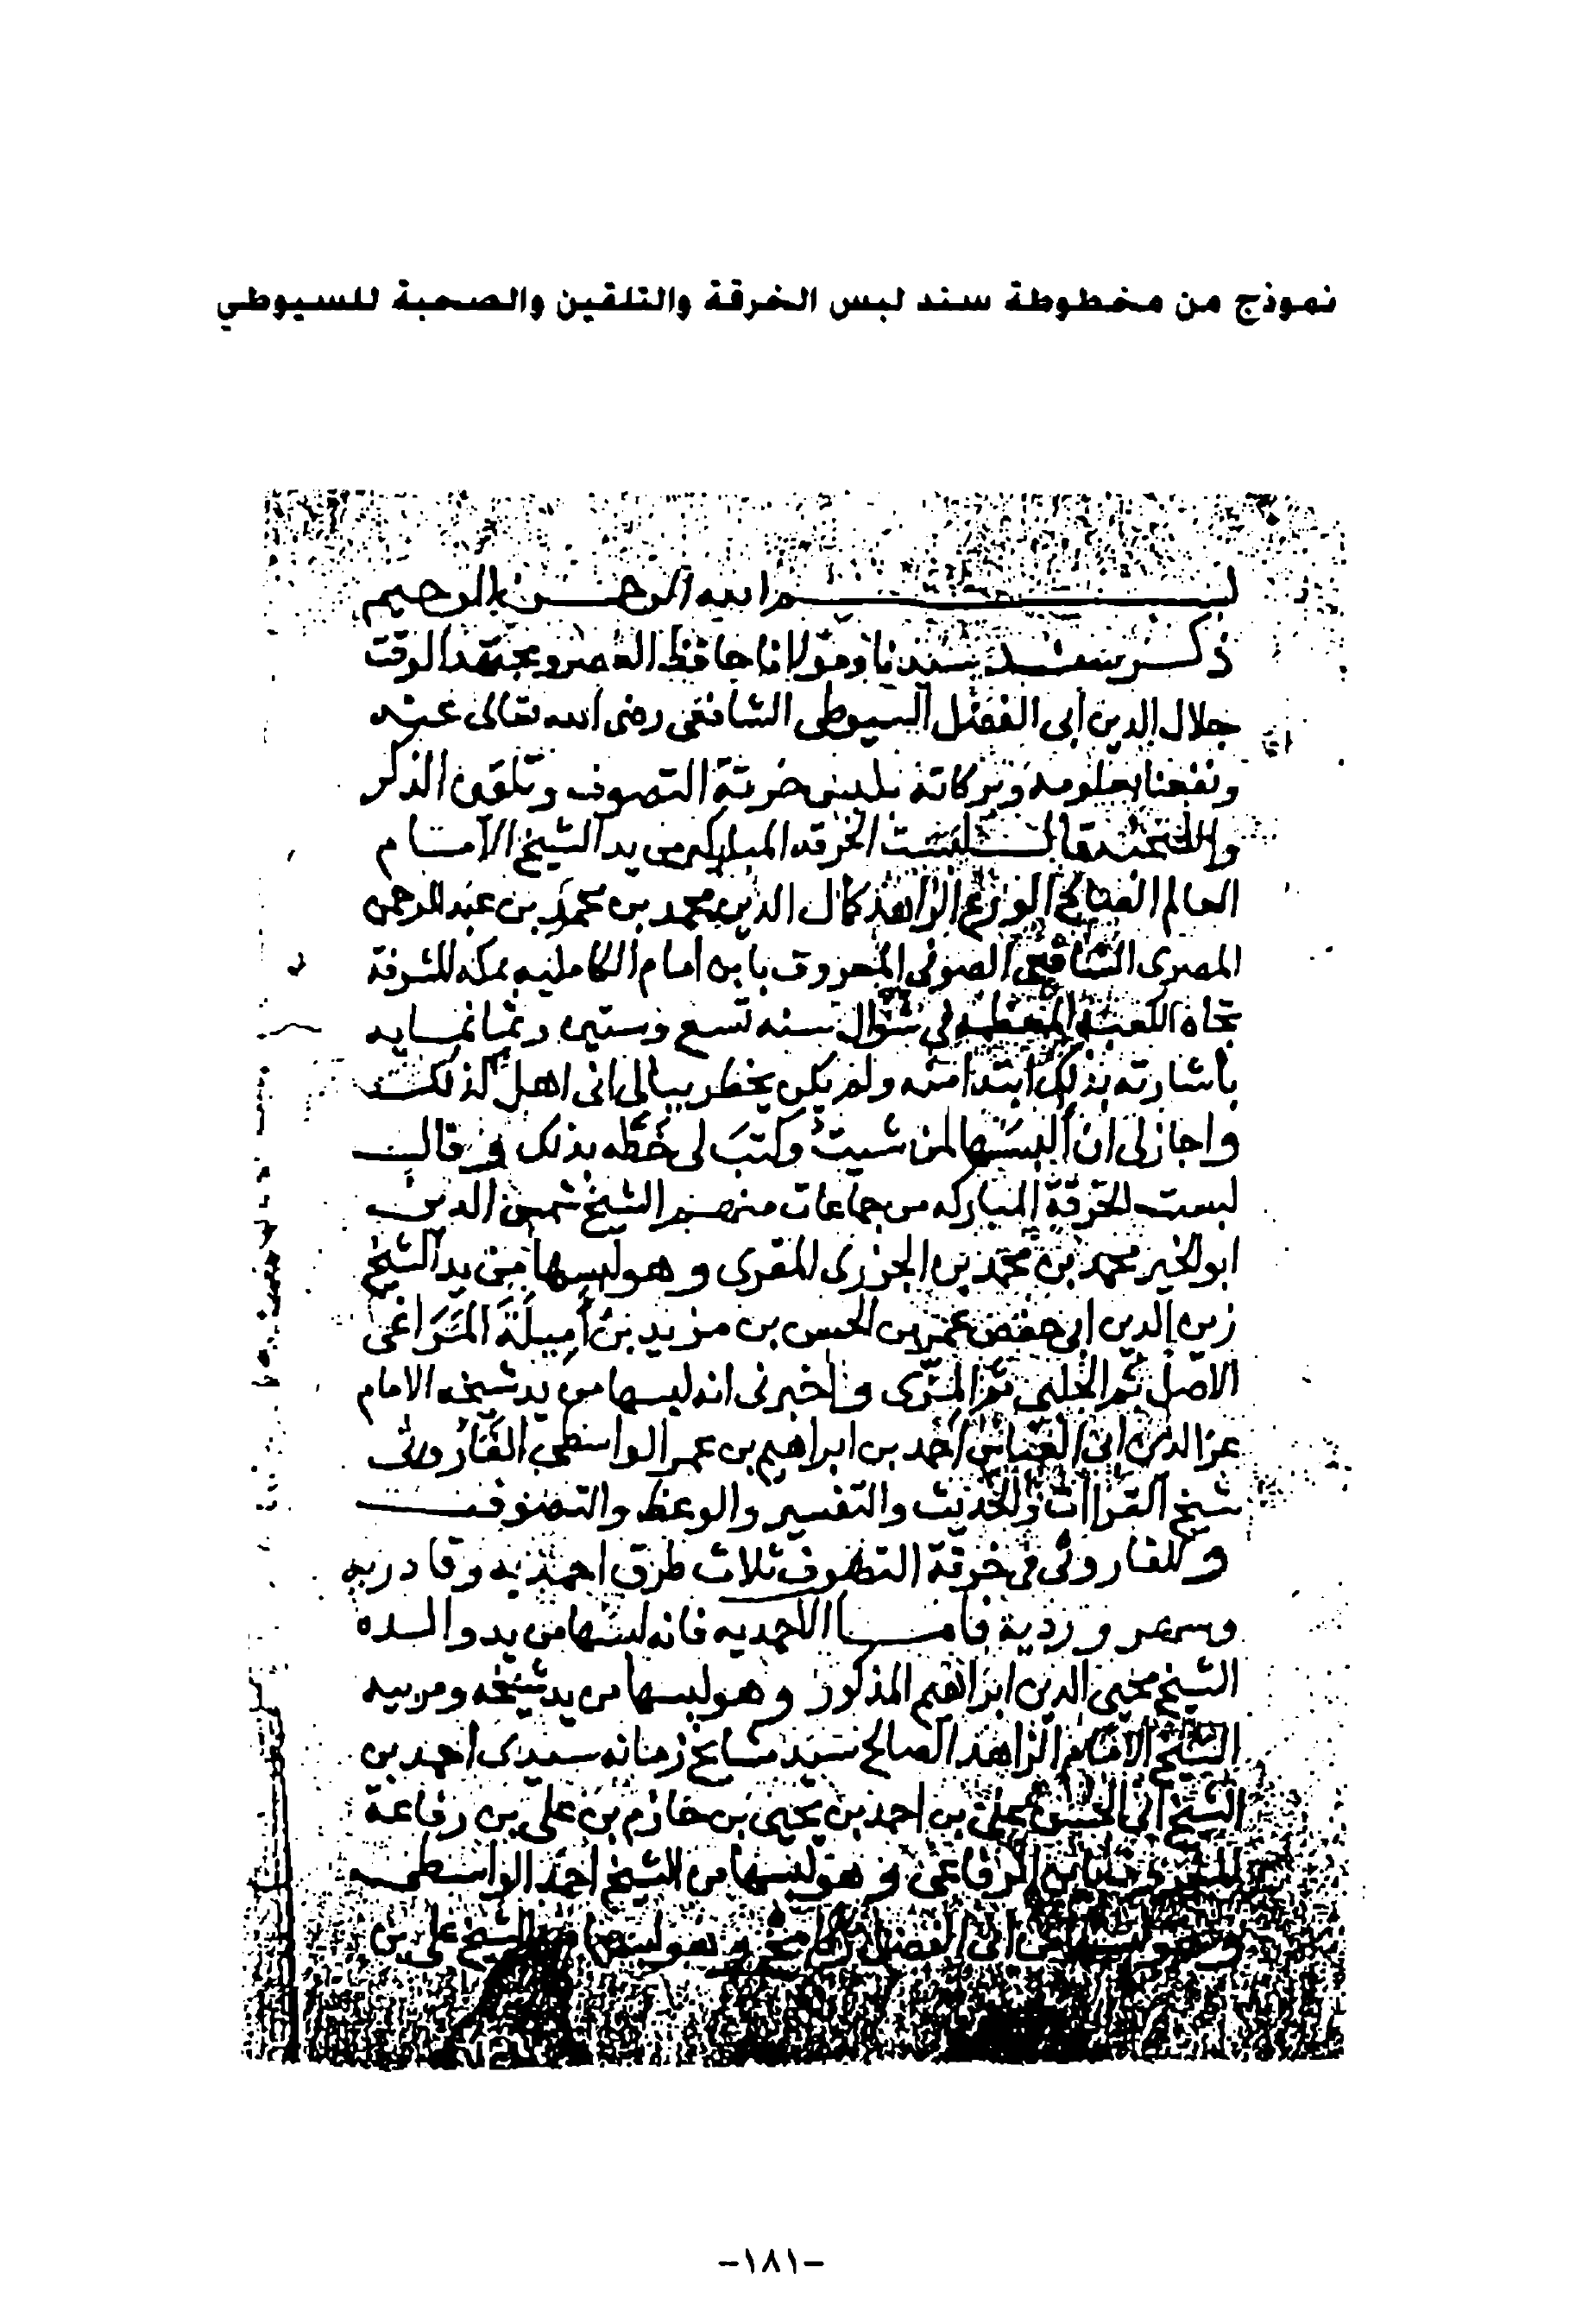 نموذج من مخطوطة سند لبس الخرقة والتلقين والصحبة للسيوطي
بسم الله الرحمن الرحيم
ذكر سند سيدنا ومولانا حافظ العصر ومجتهد الوقت
جلال الدين ابى الفضل السيوطى الشافعى رضى الله تعالى عنه
ونفعنا بعلومه وبركاته بلبس خرقة التصوف وتلقين الذكر
والصحبة قال لبست الخرقه المباركه من يد الشيخ الامام
العالم الصالح الورع الزاهد كمال الدين محمد بن محمد بن عبد الرحمن
المصرى الشافعى الصوفى المعروف بابن امام الكامليه بمكه المشرفة
تجاه الكعبة المعظمه فى شوال سنه تسع وستين وثمانمايه
باشارته بذلك ابتدا منه ولم يكن يخطر ببالى انى اهل لذلك
واجاز لى ان ألبسها لمن شيت وكتب لى خطه بذلك وقال
لبست الخرقة المباركه من جماعات منهم الشيخ شمس الدين
ابو الخير محمد بن محمد بن الجزرى المقرى وهو لبسها من يد الشيخ
زين الدين ابى حفص عمر بن الحسن بن مزيد بن أميلة المراغى
الاصل ثم الحلبى ثم المزى واخبرنى انه لبسها من يد شيخه الامام
عز الدين ابى العباس احمد بن ابراهيم بن عمر الواسطى الفاروثى
شيخ القراات والحديث والتفسير والوعظ والتصوف
وللفاروثى فى خرقة التصوف ثلاث طرق احمديه وقادريه
وسهروردية فاما الاحمديه فانه لبسها من يد والده
الشيخ محيى الدين ابراهيم المذكور وهو لبسها من يد شيخه ومربيه
الشيخ الامام الزاهد الصالح سيد مشايخ زمانه سيدى احمد بن
الشيخ ابى الحسن على بن احمد بن يحيى بن حازم بن على بن رفاعة
بابن الرفاعى وهو لبسها من الشيخ احمد الواسطى
وهو لبسها من ابى الفضل بن كامخ وهو لبسها من الشيخ على بن
-١٨١-